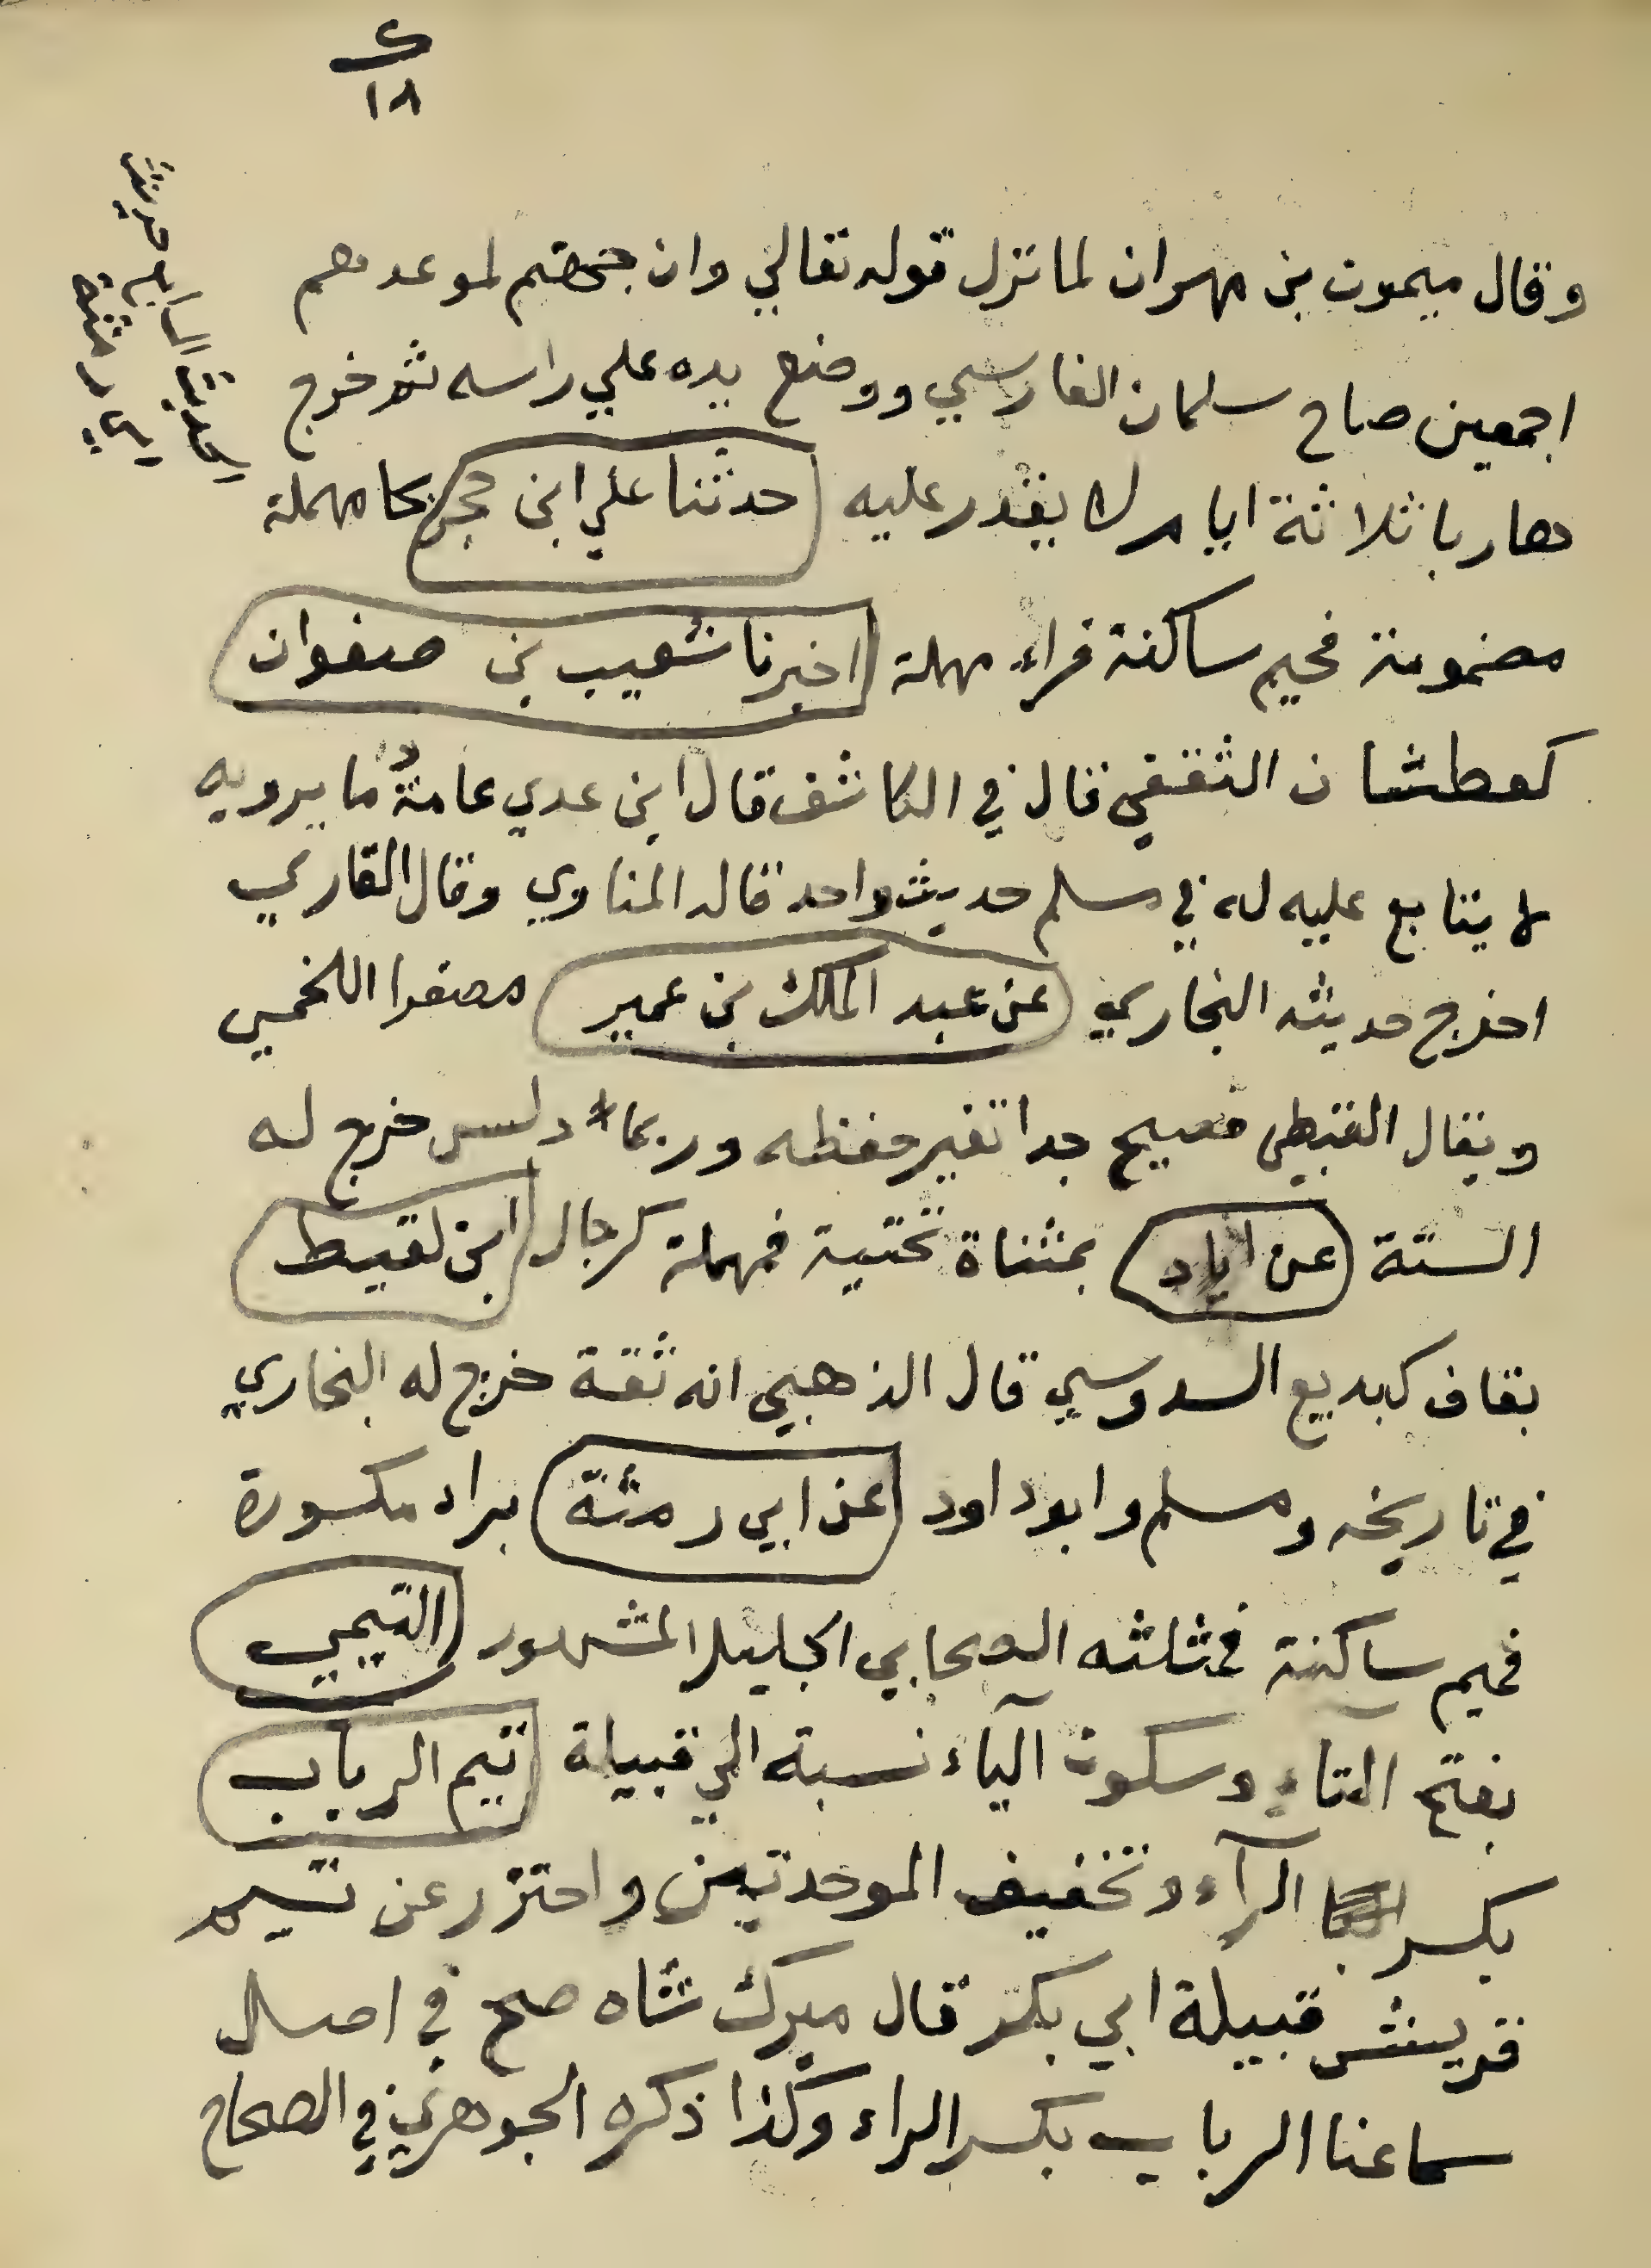 ك
١٨
الحديث السابع حديث
ابي رمثة
وقال ميمون بن مهران لما نزل قوله تعالي وان جهنم لموعدهم
اجمعين صاح سلمان الفارسي ووضع يده علي راسه ثم خرج
هاربا ثلاثة ايام لا يقدر عليه حدثنا علي ابن حجر بحا مهملة
مضمومة فجيم ساكنة فراء مهملة اخبرنا شعيب بن صفوان
كعطشان الثقفي قال في الكاشف قال ابن عدي عامة ما يرويه
لا يتابع عليه له في مسلم حديث واحد قاله المناوي وقال القاري
اخرج حديثه البخاري عن عبد الملك بن عمير مصغرا اللخمي
ويقال القبطي فصيح جدا تغير حفظه وربما دلس خرج له
الستة عن اياد بمثناة تحتية فمهملة كرجال ابن لقيط
بقاف كبديع السدوسي قال الذهبي انه ثقة خرج له البخاري
في تاريخه ومسلم وابو داود عن ابي رمثة براء مكسورة
فميم ساكنة فمثلثه الصحابي الجليل المشهور التيمي
بفتح التاء وسكون الياء نسبة الي قبيلة تيم الرباب
بكسر الرآء وتخفيف الموحدتين واحترز عن تيم
قريش قبيلة ابي بكر قال ميرك شاه صح في اصل
سماعنا الرباب بكسر الراء وكذا ذكره الجوهري في الصحاح